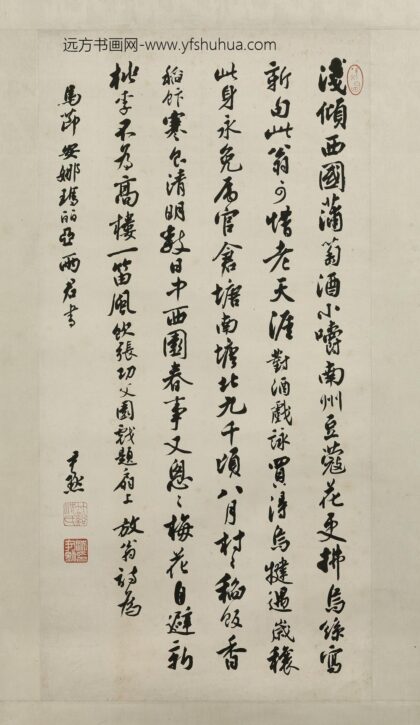 远方书画网-www.yfshuhua.com
淺傾西國蒲萄酒小嚼南州豆蔻花更拂烏絲寫
新句此翁可惜老天涯對酒戲詠買得烏犍過歲穰
此身永免屬官倉塘南塘北九千頃八月村〻稻飯香
稻飰寒食清明數日中西園春事又怱〻梅花自避新
桃李不為高樓一笛風飲張功父園戲題扇上 放翁詩為
馬節 安娜瑪麗亞兩君書
尹默